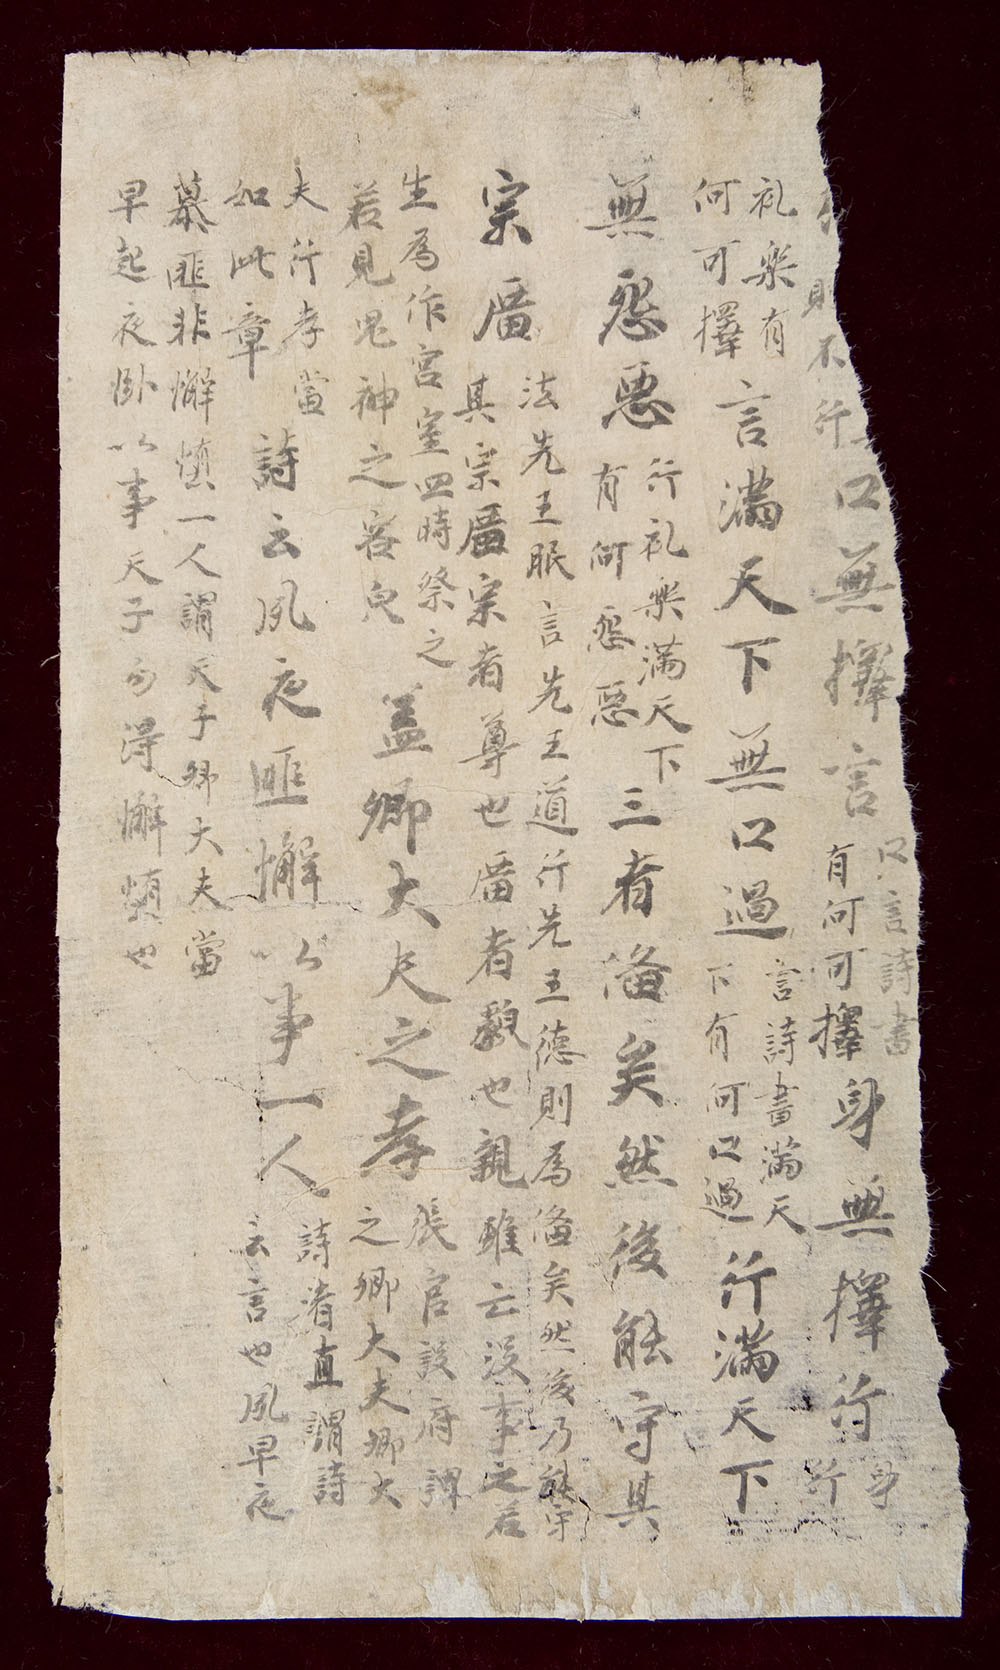 則不行
口無擇言
口言詩書
有何可擇
身無擇行
身
行
礼樂有
何可擇
言滿天下無口過
言詩書滿天
下有何口過
行滿天下
無怨惡
行礼樂滿天下
有何怨惡
三者俻矣然後能守其
宗庿
法先王服言先王道行先王德則為俻矣然後乃能守
其宗庿宗者尊也庿者皃也親雖云没事之若
生為作宮室四時祭之
若見鬼神之容皃
盖卿大夫之孝
張官設府謂
之卿大夫卿大
夫行孝當
如此章
詩云夙夜匪懈以事一人
詩者直謂詩
云言也夙早夜
暮匪非懈慎一人謂天子卿大夫當
早起夜卧以事天子勿得懈慎也